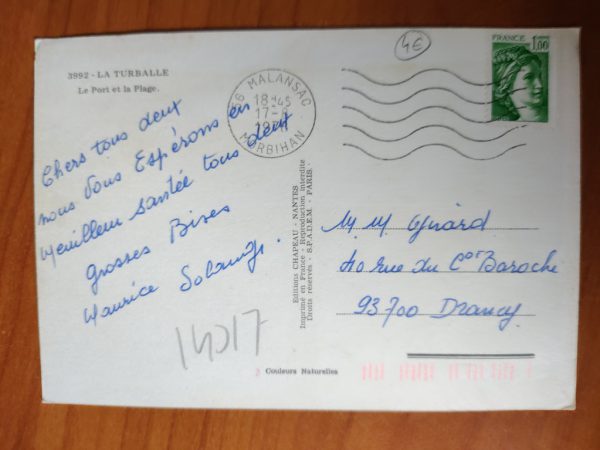 3992 - LA TURBALLE
Le Port et la Plage.
4€
FRANCE
1,00
56 MALANSAC
18H45
17-8
MORBIHAN
Chers tous deux
nous Vous Espérons en
Meilleur santée tous deux
grosses Bises
Maurice Solange.
14017
Editions CHAPEAU - NANTES
Imprimé en France - Reproduction interdite
Droits réservés - S.P.A.D.E.M. - PARIS.
M. M Gérard
40 rue du Cor Baroche
93700 Drancy
Couleurs Naturelles